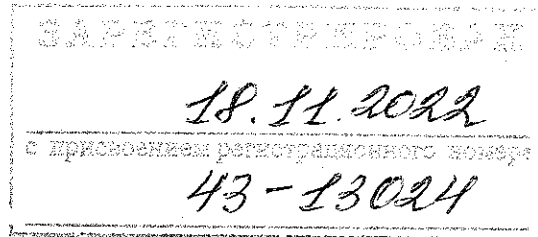 ЗАРЕГИСТРИРОВАН
18.11.2022
с присвоением регистрационного номера
43-13024